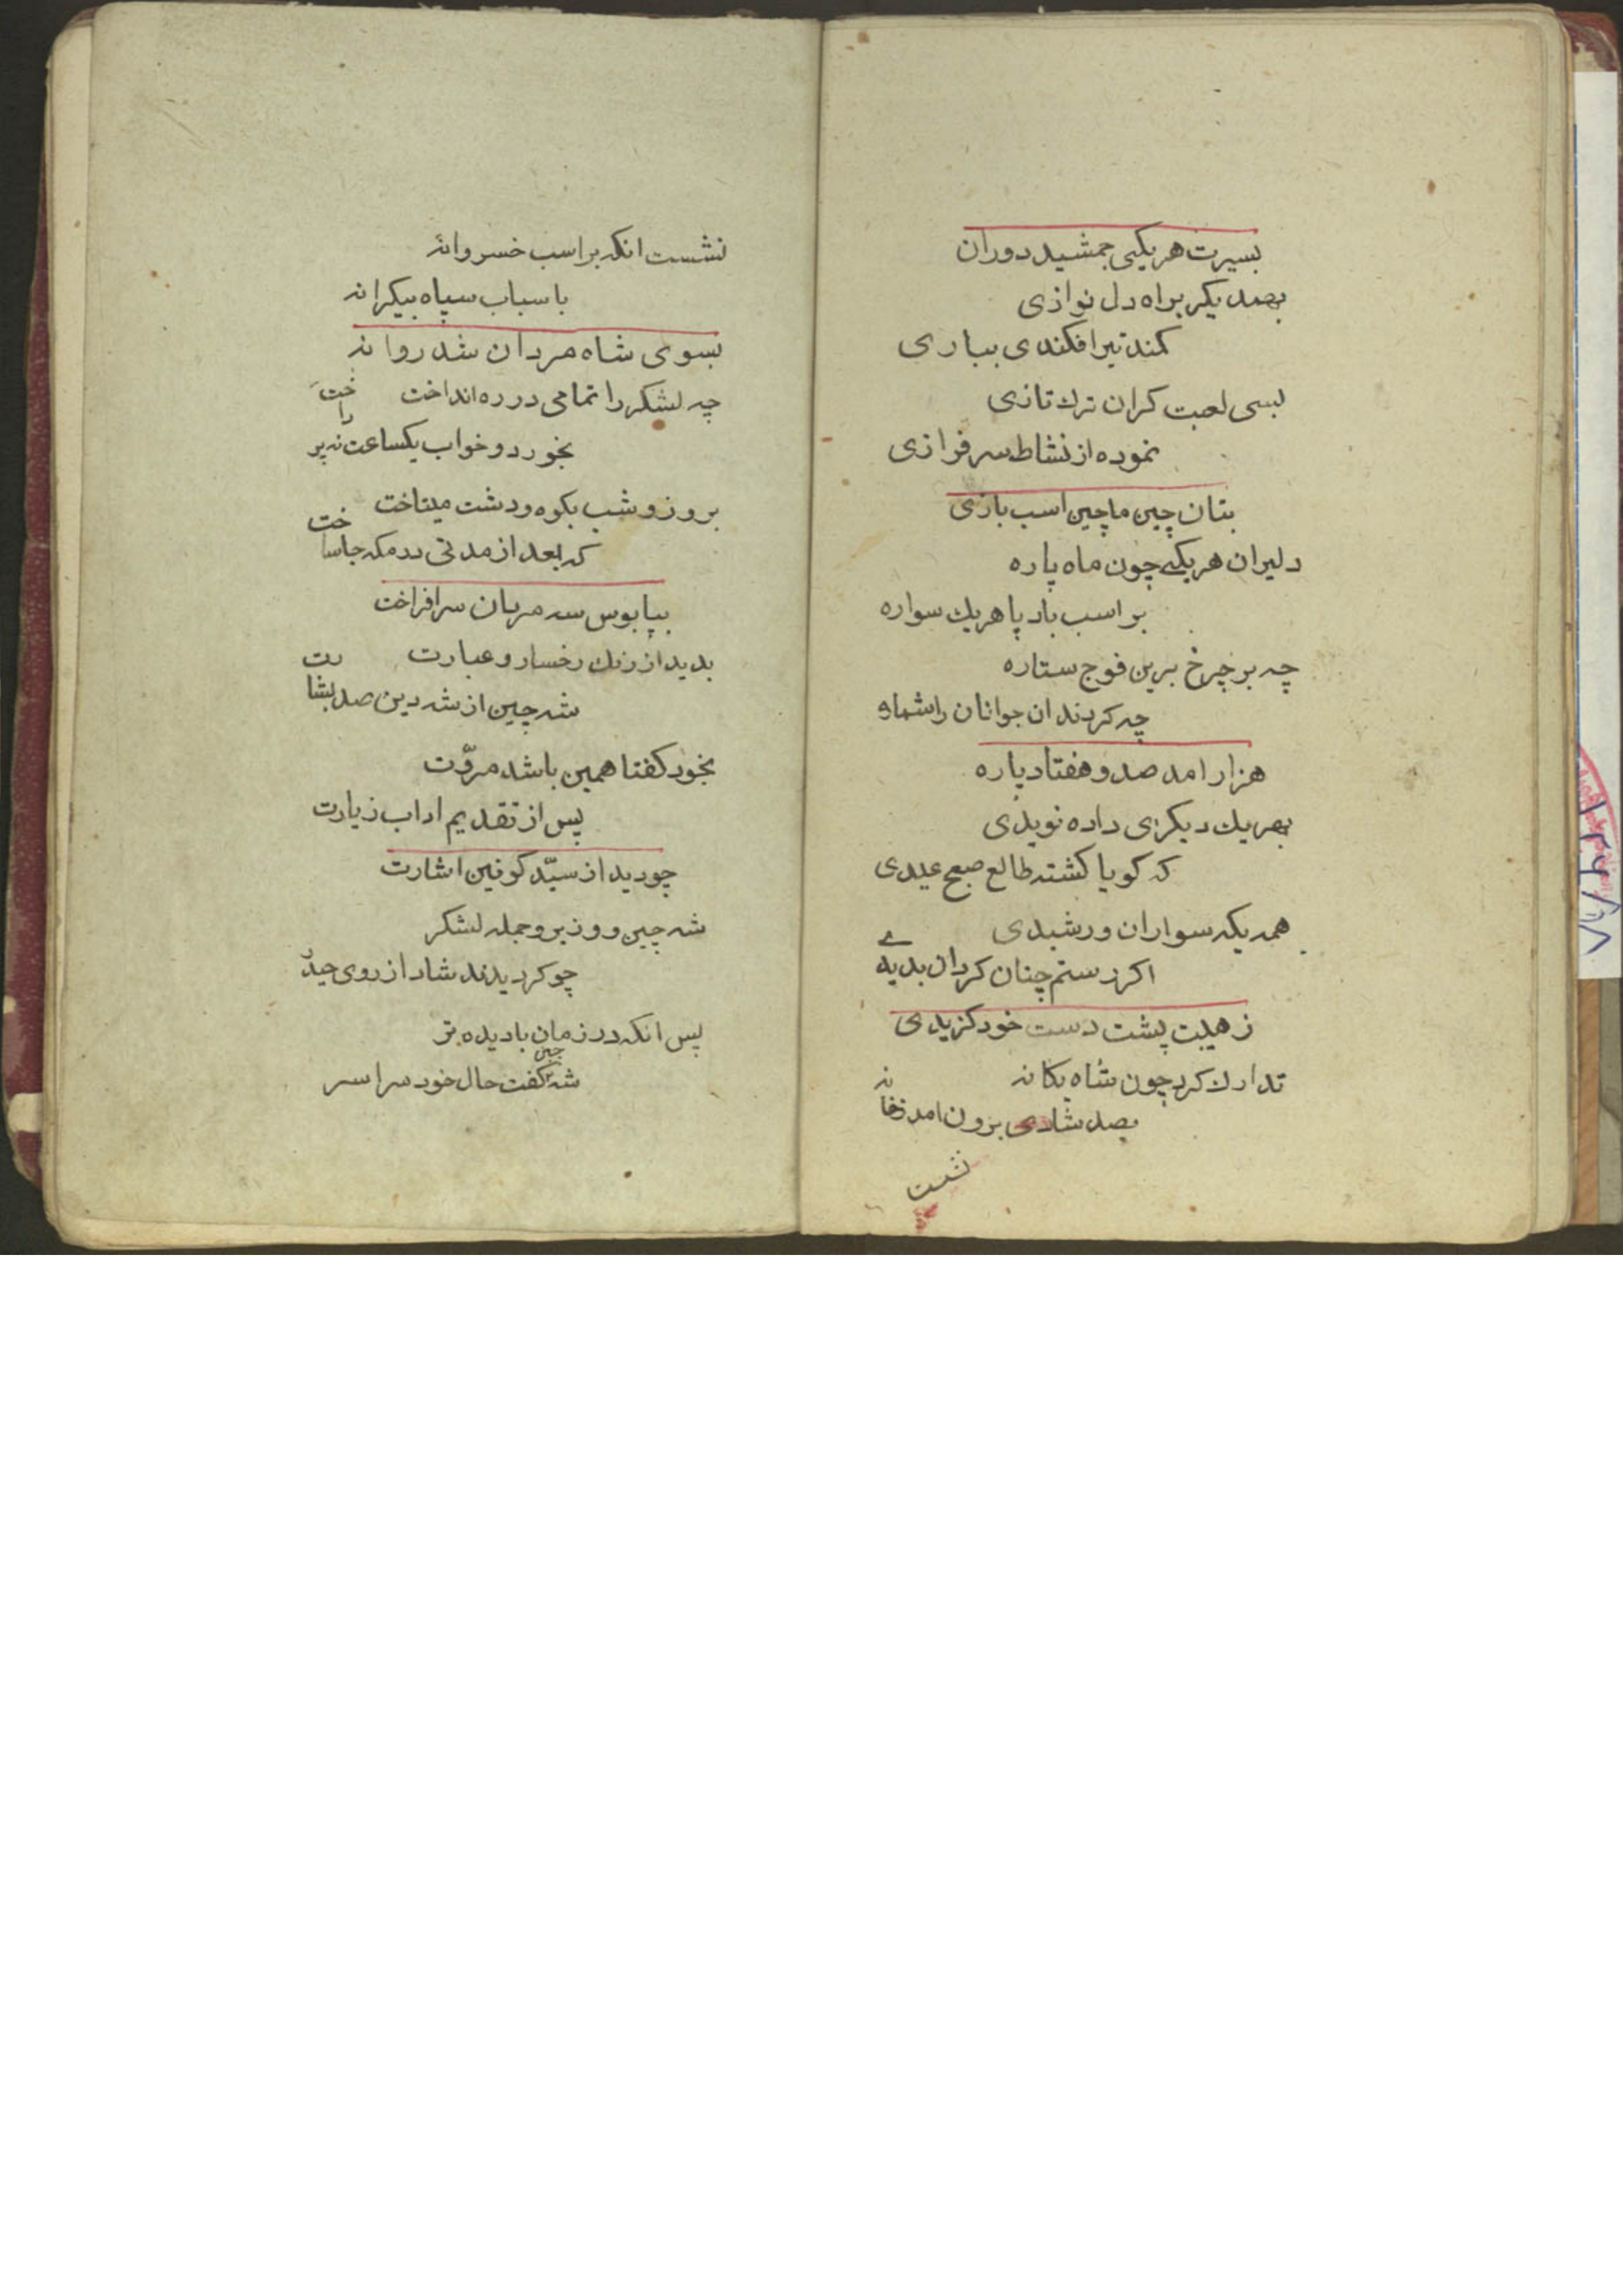 بسیرت هریکی جمشید دوران
بهمدیکر براه دل نوازی
کمند تیر افکندی ببازی
لبسی لعبت کران ترك تازی
نموده از نشاط سرفرازی
بتان چین ماچین اسب بازی
دلیران هریکی چون ماه پاره
بر اسب باد پا هریك سواره
چه بر چرخ برین فوج ستاره
چه کردند ان جوانان را شماره
هزار امد صد و هفتاد پاره
بهریك دیکری داده نویدی
که کویا کشته طالع صبح عیدی
همه یکه سواران ورشیدی
اکر رستم چنان کردان بدیدی
ز هیبت پشت دست خود کزیدی
تدارك کرد چون شاه یکانه
بصد شادی برون امد ز خانه
نشست
نشست انکه بر اسب خسروانه
باسباب سپاه بیکرانه
بسوی شاه مردان شد روانه
چه لشکر را تمامی در ره انداخت
بخورد و خواب یکساعت نه پرداخت
بروز و شب بکوه و دشت میتاخت
که بعد از مدتی در مکه جا ساخت
بپابوس شه مردان سرافراخت
بدید از رنك رخسار و عبارت
شه چین از شه دین صد بشارت
بخود کفتا همین باشد مروّت
پس از تقدیم اداب زیارت
چو دید از سیّد کونین اشارت
شه چین و وزیر و جمله لشکر
چو کردیدند شاد از روی حیدر
پس انکه در زمان با دیده تر
شه چین کفت حال خود سراسر